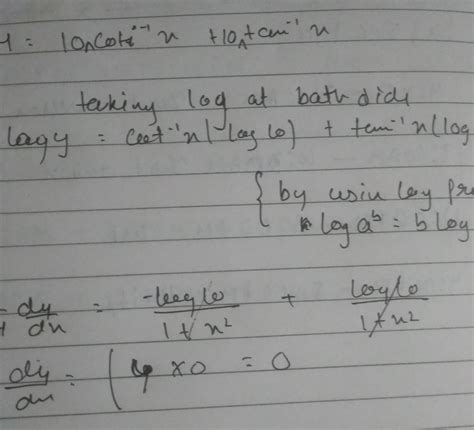 y = 10^cot^-1 x + 10^tan^-1 x
taking log at bath dide
logy = cot^-1 x (log 10) + tan^-1 x (log
{ by usin log pr
log a^b = b log
dy/dx = -log10/1+x² + log10/1+x²
dy/dx = ( y x0 = 0